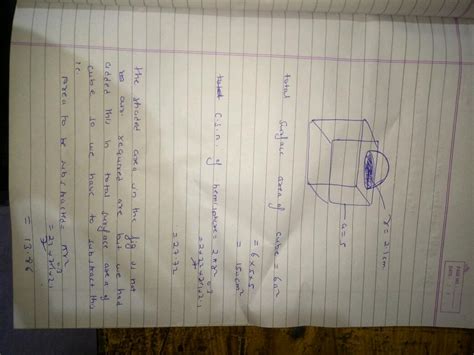 r = 2.1 cm
a = 5
total surface area of cube = 6a²
= 6×5×5
= 150 cm²
C.S.A. of hemisphere = 2πr²
= 2×22×2.1×2.1
7
= 27.72
the shaded area in the fig is not
our required are but we had
added this in total surface area of
cube so we have to substract this
i.e.
area to be substracted = πr²
= 22×2.1×2.1
7
= 13.86